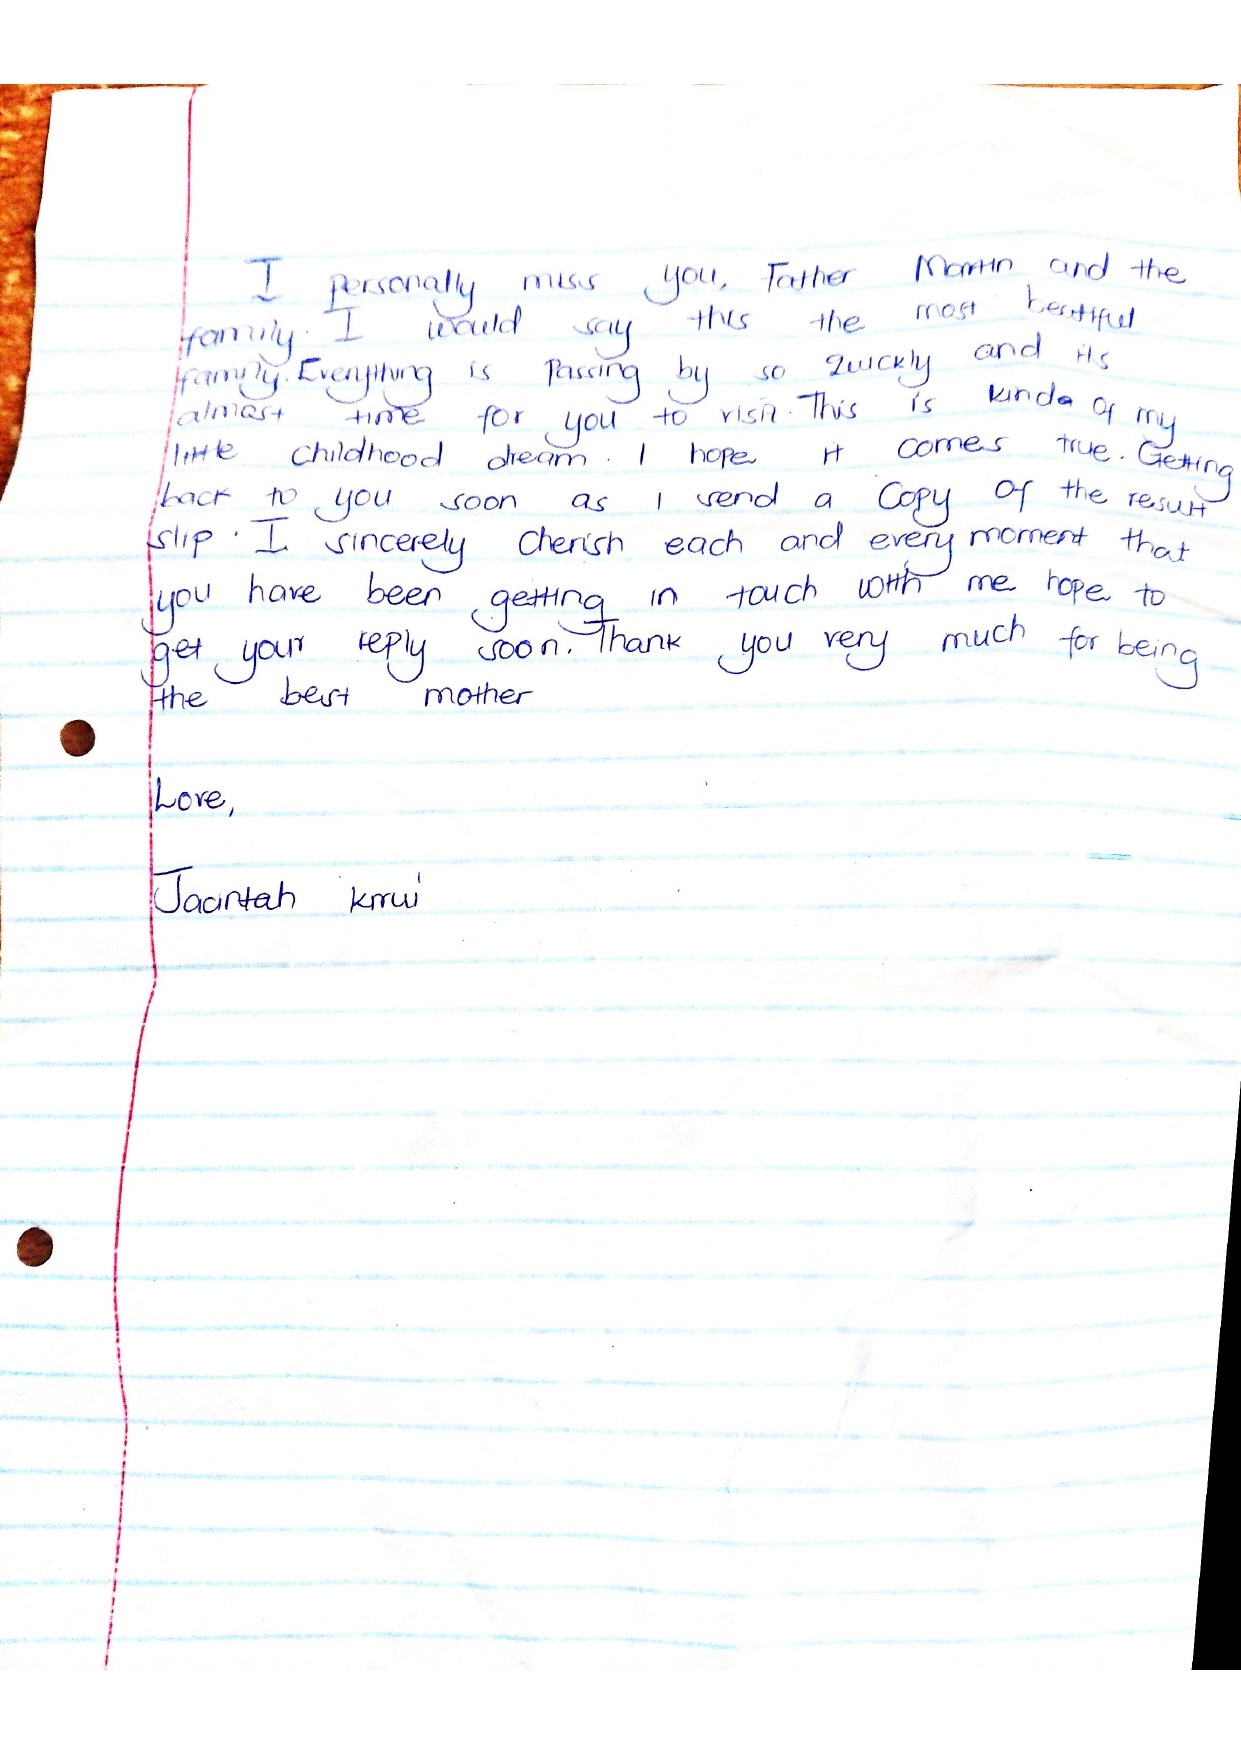 I personally miss you, Father Martin and the
family. I would say this the most beautiful
family. Everything is passing by so quickly and its
almost time for you to visit. This is kinda of my
little childhood dream. I hope it comes true. Getting
back to you soon as I send a copy of the result
slip. I sincerely cherish each and every moment that
you have been getting in touch with me hope to
get your reply soon. Thank you very much for being
the best mother
Love,
Jacintah